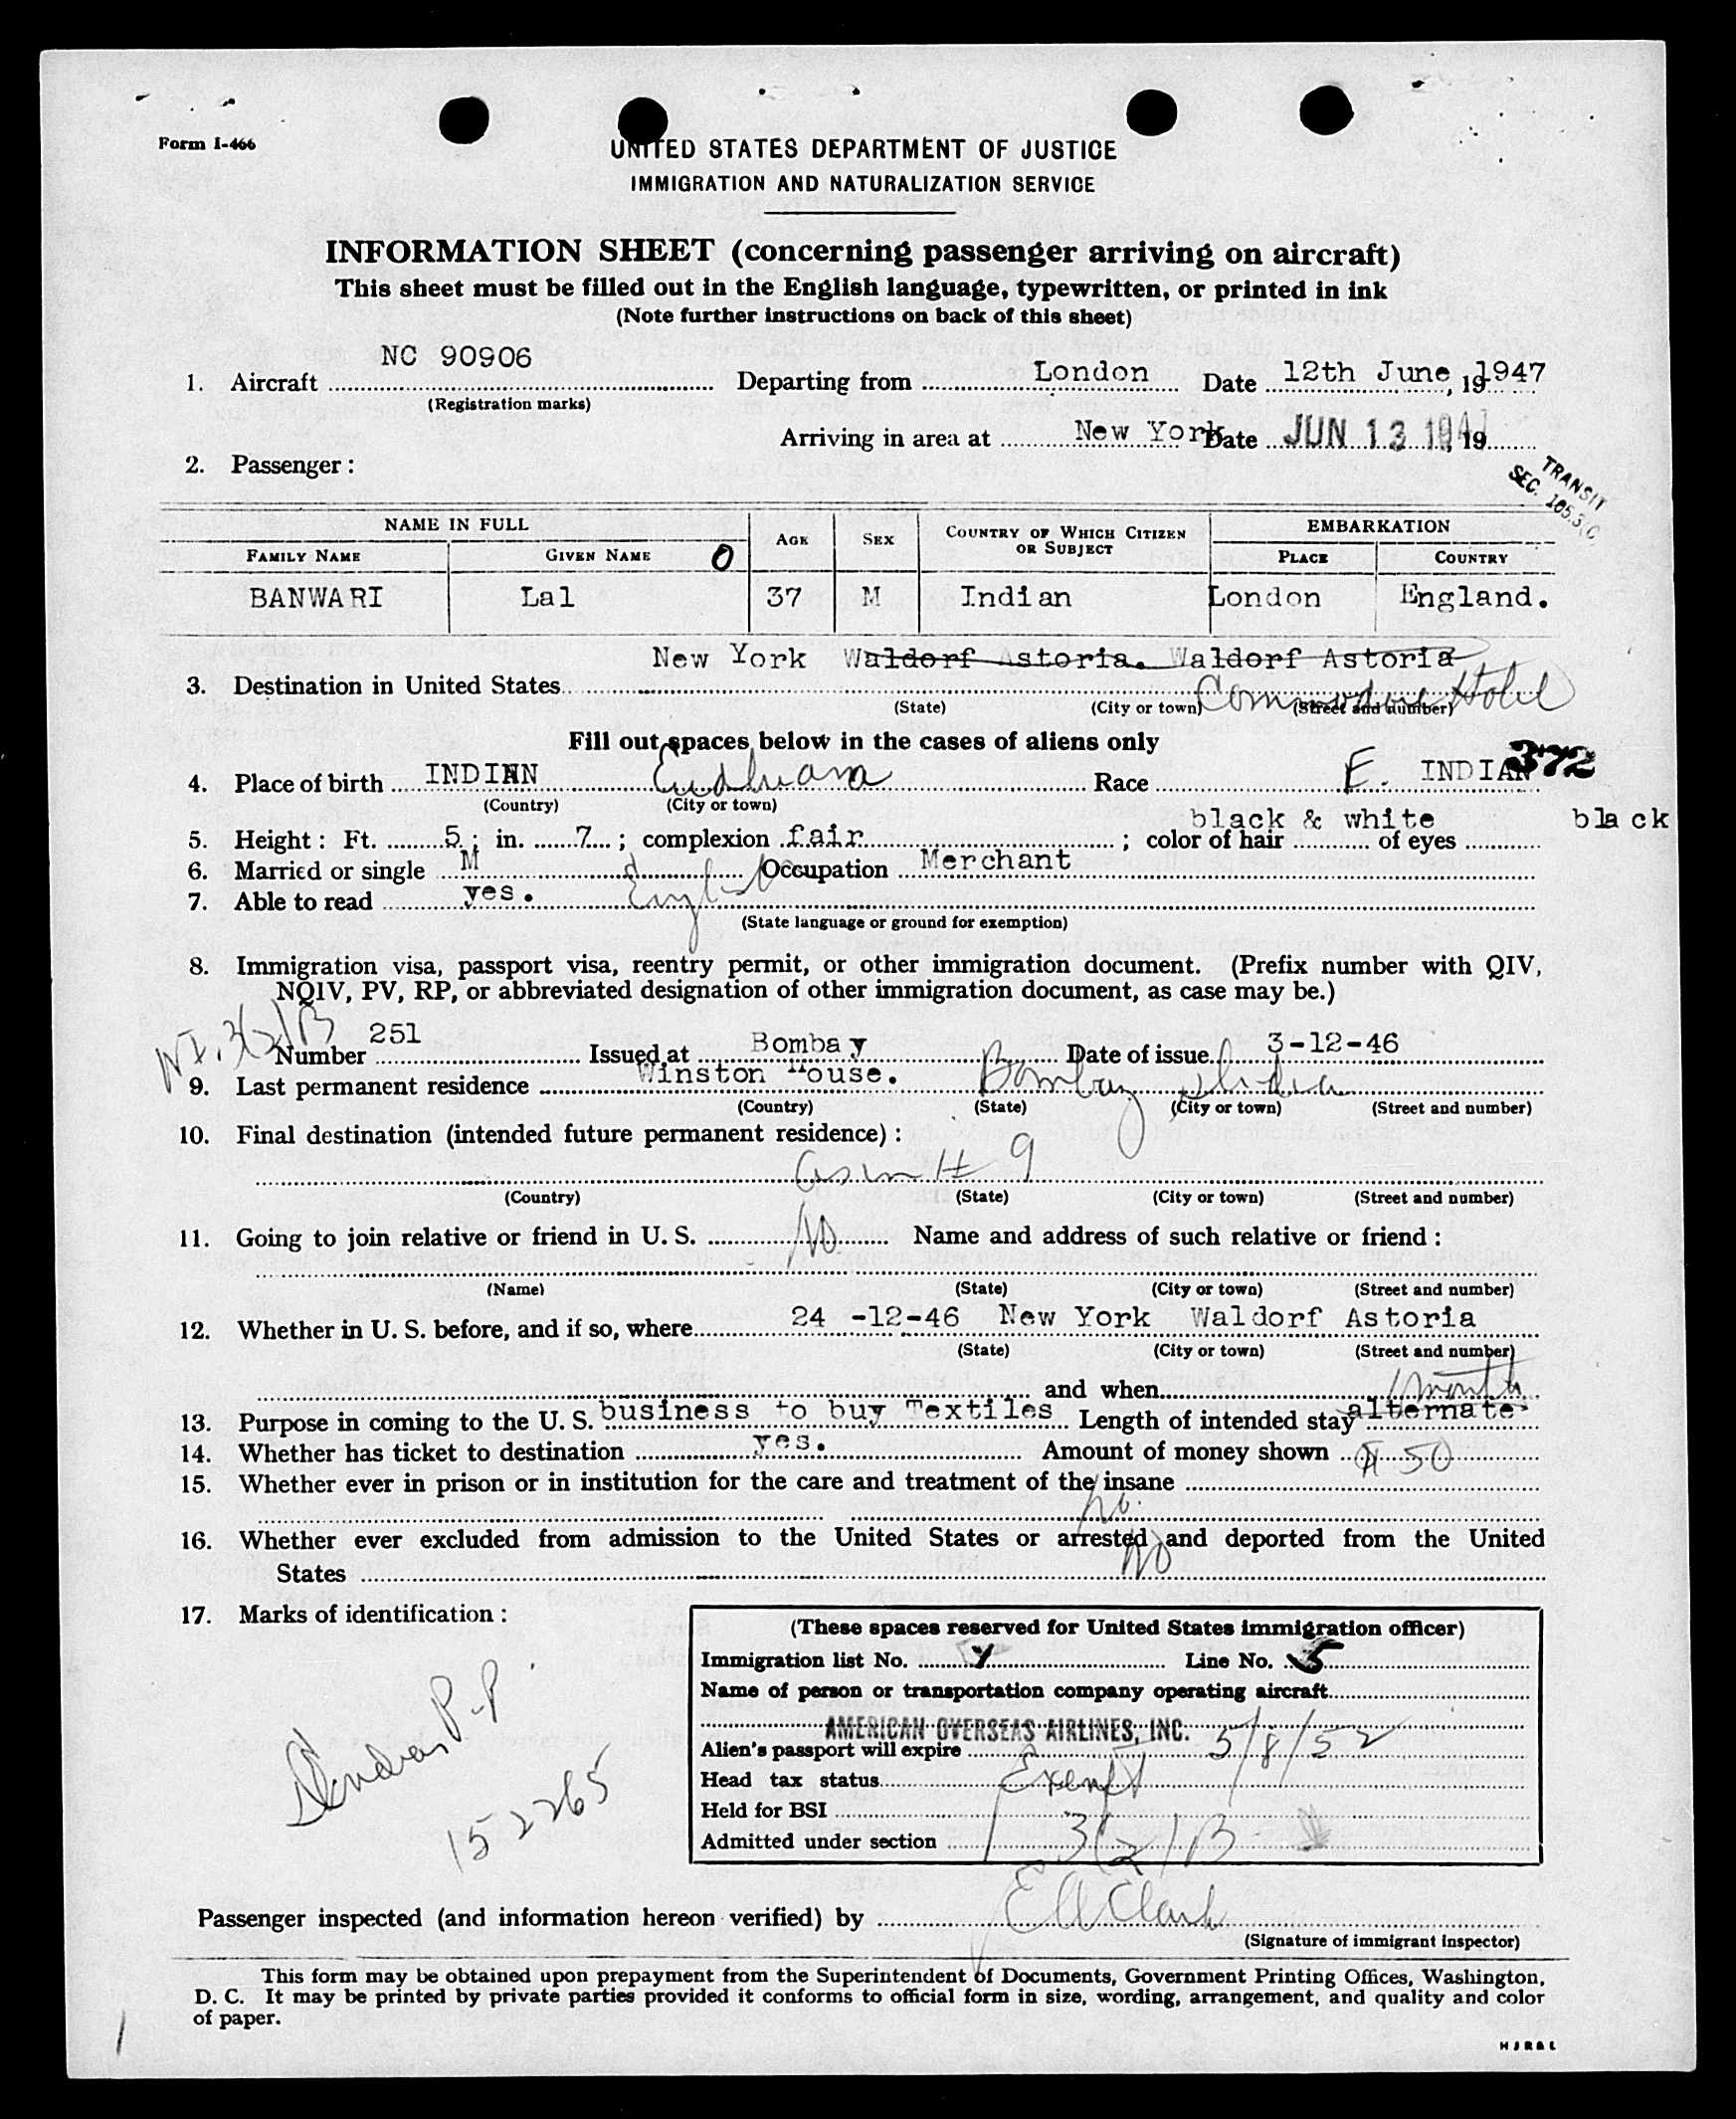 Form I-466
UNITED STATES DEPARTMENT OF JUSTICE
IMMIGRATION AND NATURALIZATION SERVICE
INFORMATION SHEET (concerning passenger arriving on aircraft)
This sheet must be filled out in the English language, typewritten, or printed in ink
(Note further instructions on back of this sheet)
1. Aircraft NC 90906 Departing from London Date 12th June, 19 1947
(Registration marks)
Arriving in area at New York Date JUN 13 1947, 19
2. Passenger:
TRANSIT
SEC. 165.3
NAME IN FULL AGE SEX COUNTRY OF WHICH CITIZEN OR SUBJECT EMBARKATION
FAMILY NAME GIVEN NAME O PLACE COUNTRY
BANWARI Lal 37 M Indian London England.
New York Waldorf Astoria. Waldorf Astoria
3. Destination in United States Commodore Hotel
(State) (City or town) (Street and number)
Fill out spaces below in the cases of aliens only
4. Place of birth INDIAN Race E. INDIAN 372
(Country) (City or town)
5. Height: Ft. 5; in. 7; complexion fair; color of hair black & white of eyes black
6. Married or single M Occupation Merchant
7. Able to read yes. English
(State language or ground for exemption)
8. Immigration visa, passport visa, reentry permit, or other immigration document. (Prefix number with QIV,
NQIV, PV, RP, or abbreviated designation of other immigration document, as case may be.)
3(2)B
Number 251 Issued at Bombay Date of issue 3-12-46
9. Last permanent residence Winston House. Bombay India
(Country) (State) (City or town) (Street and number)
10. Final destination (intended future permanent residence):
as in # 9
(Country) (State) (City or town) (Street and number)
11. Going to join relative or friend in U. S. No Name and address of such relative or friend:
(Name) (State) (City or town) (Street and number)
12. Whether in U. S. before, and if so, where 24 -12-46 New York Waldorf Astoria
(State) (City or town) (Street and number)
and when 1 month
13. Purpose in coming to the U. S. business to buy Textiles Length of intended stay alternate
14. Whether has ticket to destination yes. Amount of money shown $ 50
15. Whether ever in prison or in institution for the care and treatment of the insane
no.
16. Whether ever excluded from admission to the United States or arrested and deported from the United
States No
17. Marks of identification:
(These spaces reserved for United States immigration officer)
Immigration list No. Line No. 5
Name of person or transportation company operating aircraft
AMERICAN OVERSEAS AIRLINES, INC.
Alien's passport will expire 5/8/52
Head tax status Exempt
Held for BSI
Admitted under section 3(2)B
P.P.
152265
Passenger inspected (and information hereon verified) by E A Clark
(Signature of immigrant inspector)
This form may be obtained upon prepayment from the Superintendent of Documents, Government Printing Offices, Washington,
D. C. It may be printed by private parties provided it conforms to official form in size, wording, arrangement, and quality and color
of paper.